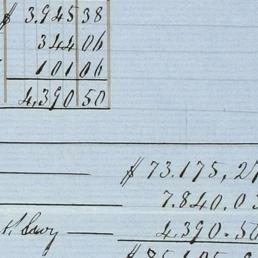 $ 3.945 38
344 06
101 06
4,390 50
$ 73.175,27
7.840.03
4.390.50